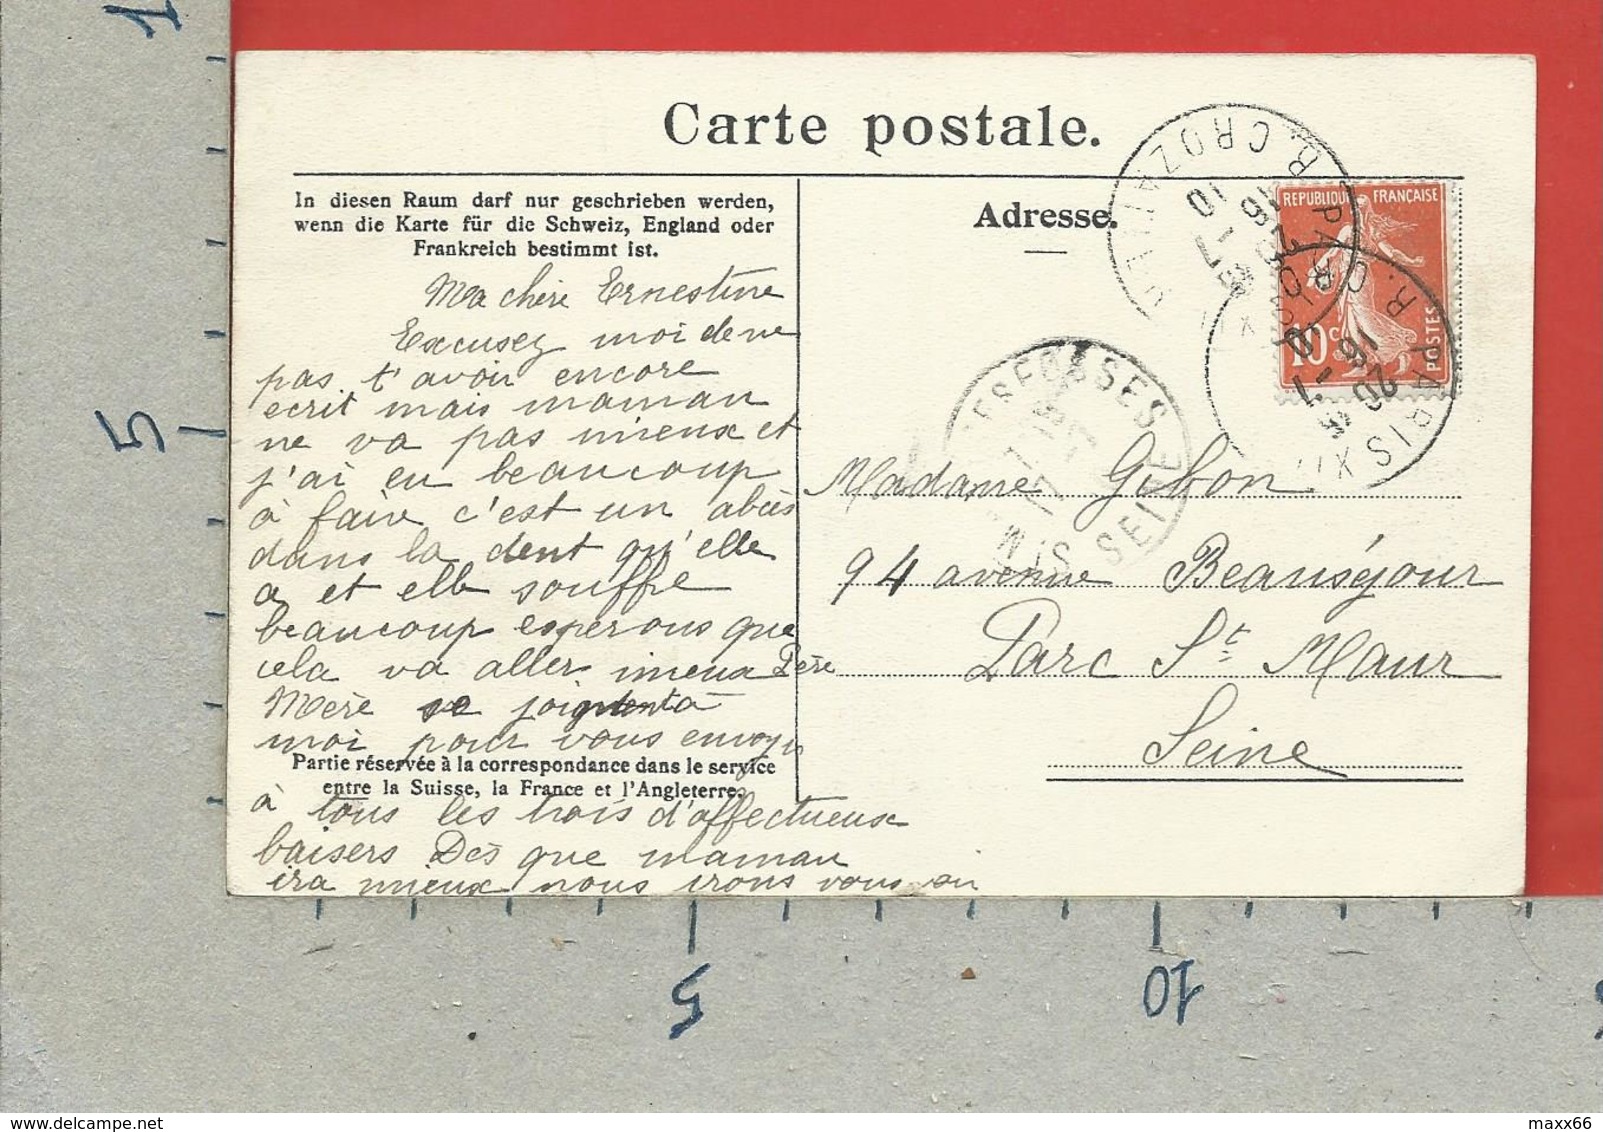 Carte postale.
In diesen Raum darf nur geschrieben werden,
wenn die Karte für die Schweiz, England oder
Frankreich bestimmt ist.
Adresse.
REPUBLIQUE FRANÇAISE
10 c
POSTES
PARIS XIII
R. CROZATIER
PARIS XII
R. CRO
16 20
ESFOSSES
SEINE
Ma chère Ernestine
Excusez moi de ne
pas t'avoir encore
ecrit mais maman
ne va pas mieux et
j'ai eu beaucoup
à faire c'est un abcès
dans la dent qu'elle
a et elle souffre
beaucoup esperons que
cela va aller mieux Père
Mère se joignent à
moi pour vous envoyer
Partie réservée à la correspondance dans le service
entre la Suisse, la France et l'Angleterre.
à tous les trois d'affectueux
baisers Dès que maman
ira mieux nous irons vous
Madame Gibon
94 avenue Beauséjour
Parc St Maur
Seine
1
5
5
10
delcampe.net
maxx66